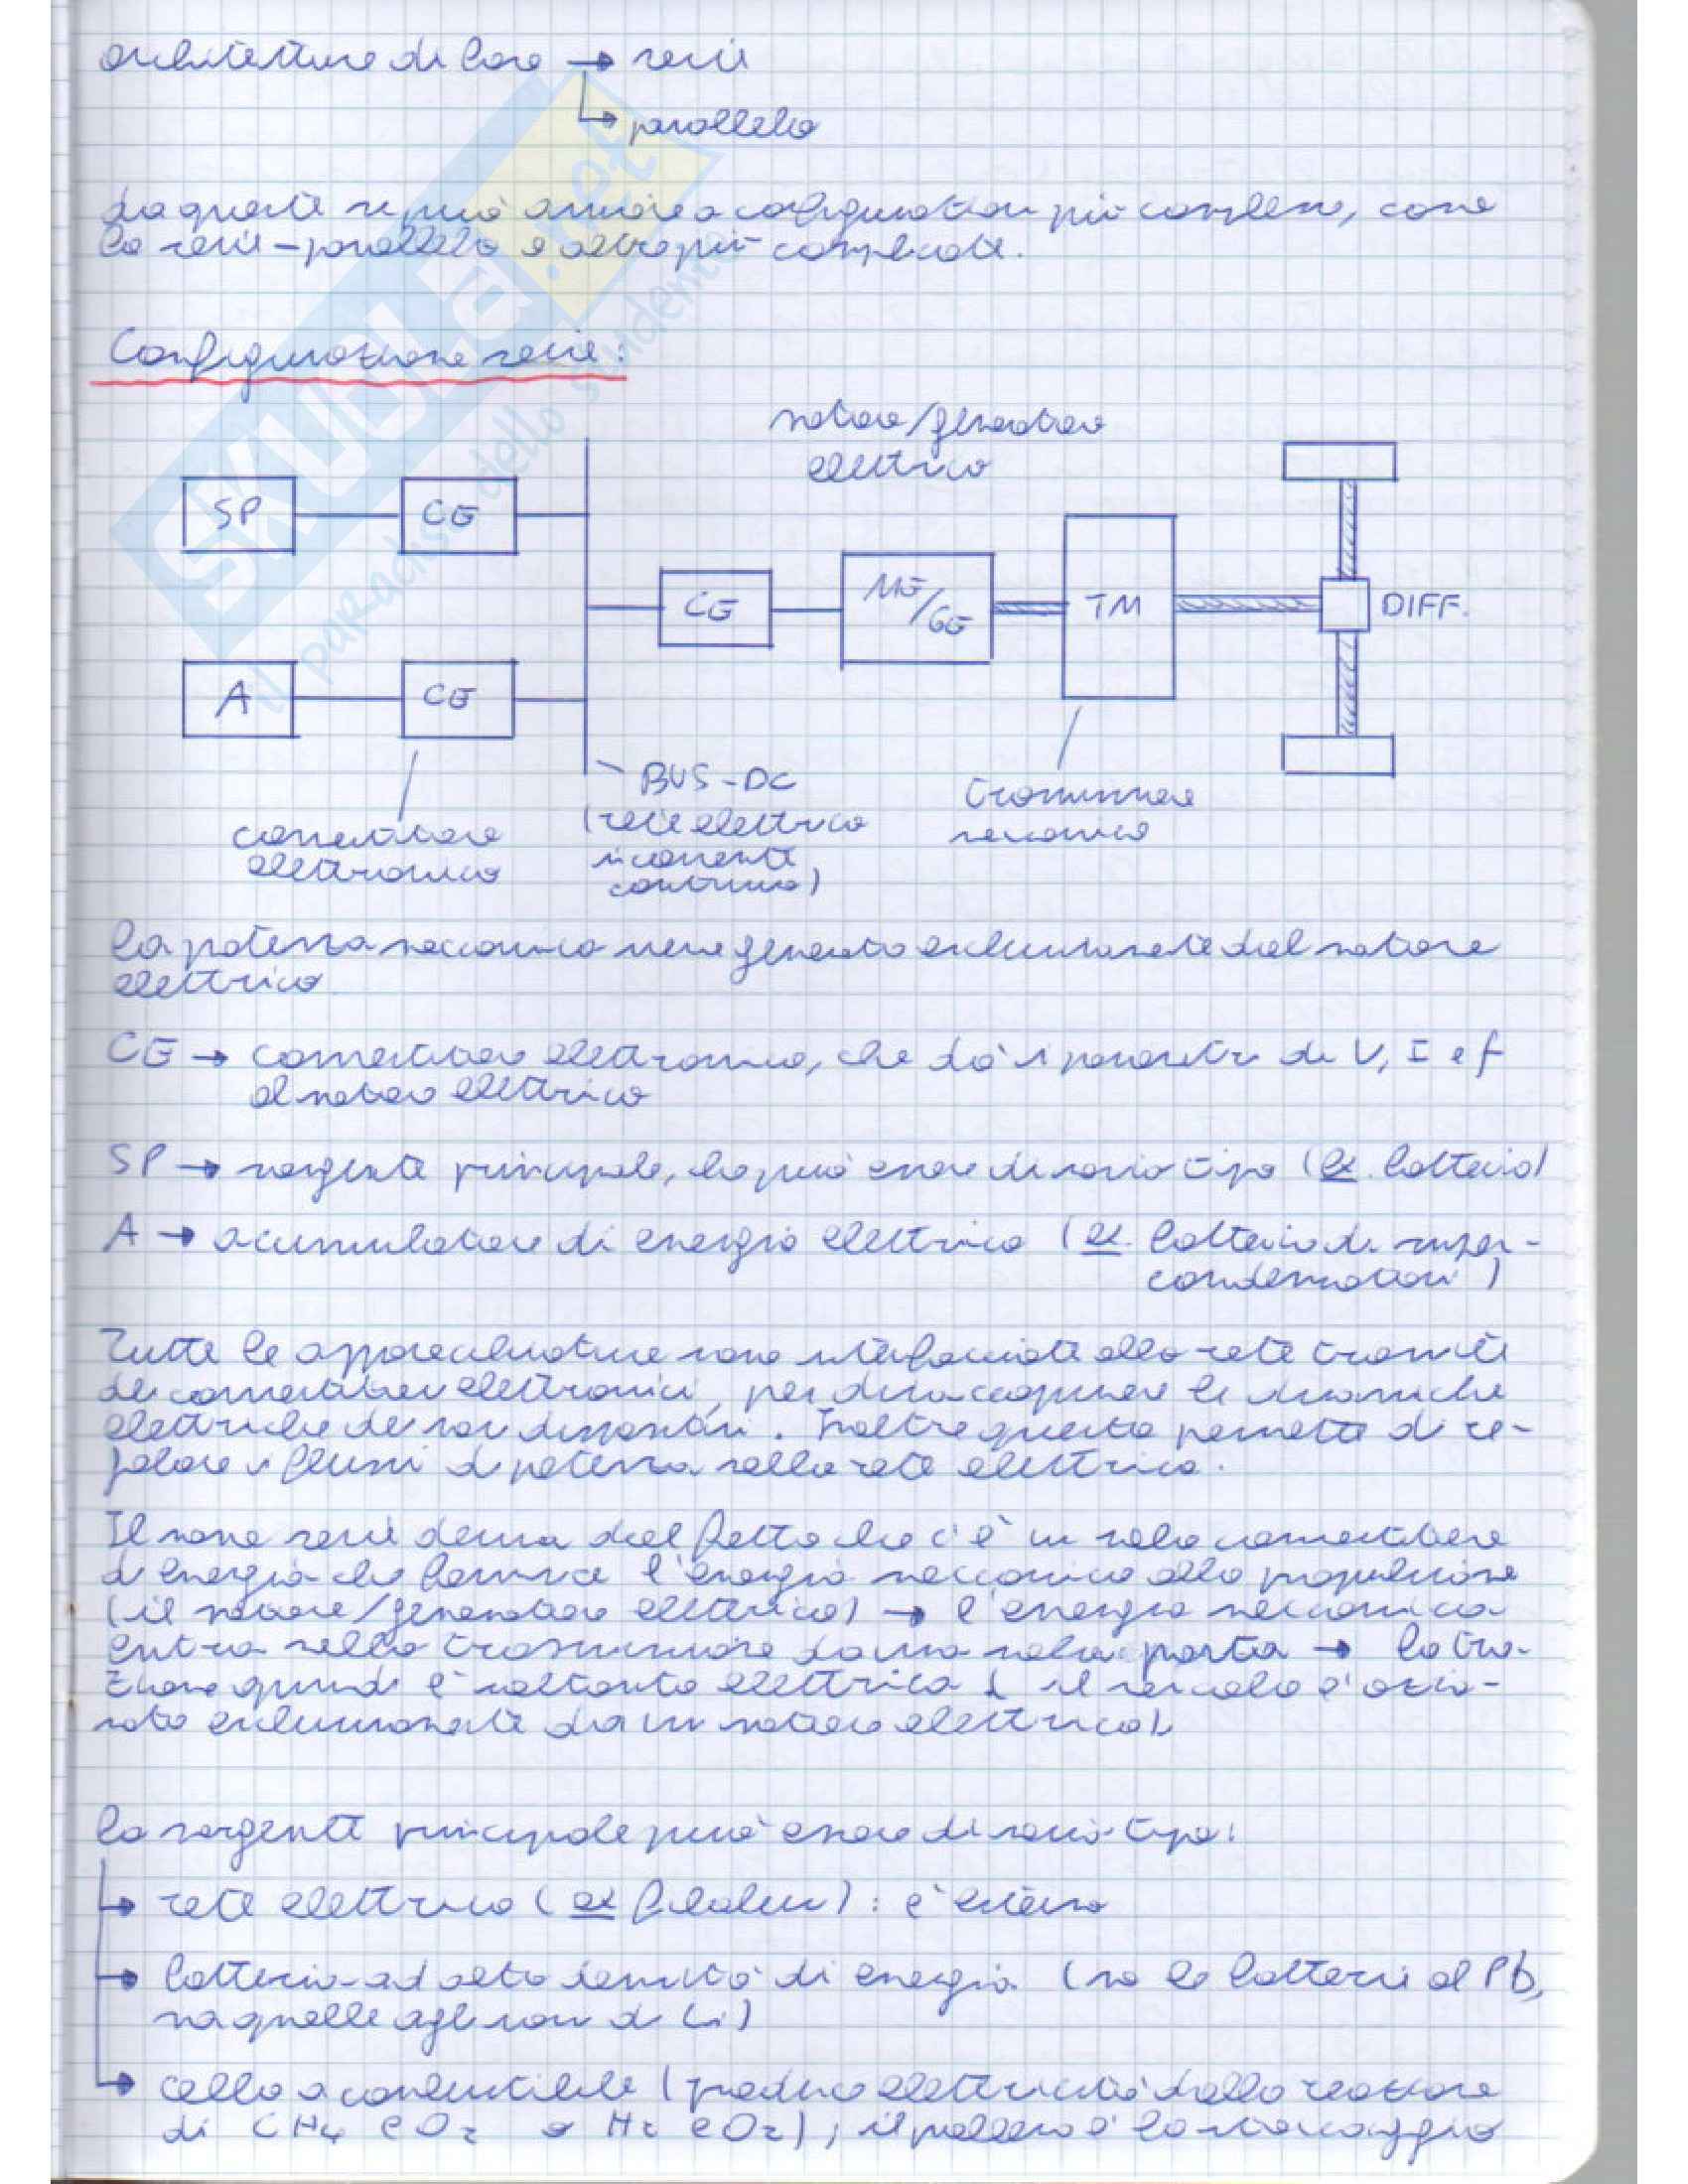 architetture di base → serie
↳ parallelo
da queste si può arrivare a configurazioni più complesse, come
la serie-parallelo e altre più complicate.
Configurazione serie:
motore/generatore
elettrico
SP
CE
CE
ME/GE
TM
DIFF.
A
CE
BUS-DC
(rete elettrica
in corrente
continua)
convertitore
elettronico
trasmissione
meccanica
la potenza meccanica viene generata esclusivamente dal motore
elettrico
CE → convertitore elettronico, che dà i parametri di V, I e f
al motore elettrico
SP → sorgente principale, che può essere di vario tipo (es. batteria)
A → accumulatore di energia elettrica (es. batteria di super-
condensatori)
Tutte le apparecchiature sono interfacciate alla rete tramite
dei convertitori elettronici, per disaccoppiare le dinamiche
elettriche dei vari dispositivi. Inoltre questo permette di re-
golare i flussi di potenza nella rete elettrica.
Il nome serie deriva dal fatto che c'è un solo convertitore
di energia che fornisce l'energia meccanica alla propulsione
(il motore/generatore elettrico) → l'energia meccanica
entra nella trasmissione da una sola porta → la tra-
zione quindi è soltanto elettrica (il veicolo è azio-
nato esclusivamente da un motore elettrico).
la sorgente principale può essere di vario tipo:
↳ rete elettrica (es filobus): è esterna
→ batteria ad alta densità di energia (no le batterie al Pb,
ma quelle agli ioni di Li)
↳ cella a combustibile (produce elettricità dalla reazione
di CH4 e O2 o H2 e O2); il problema è lo stoccaggio
SKUOLA.net
il paradiso dello studente